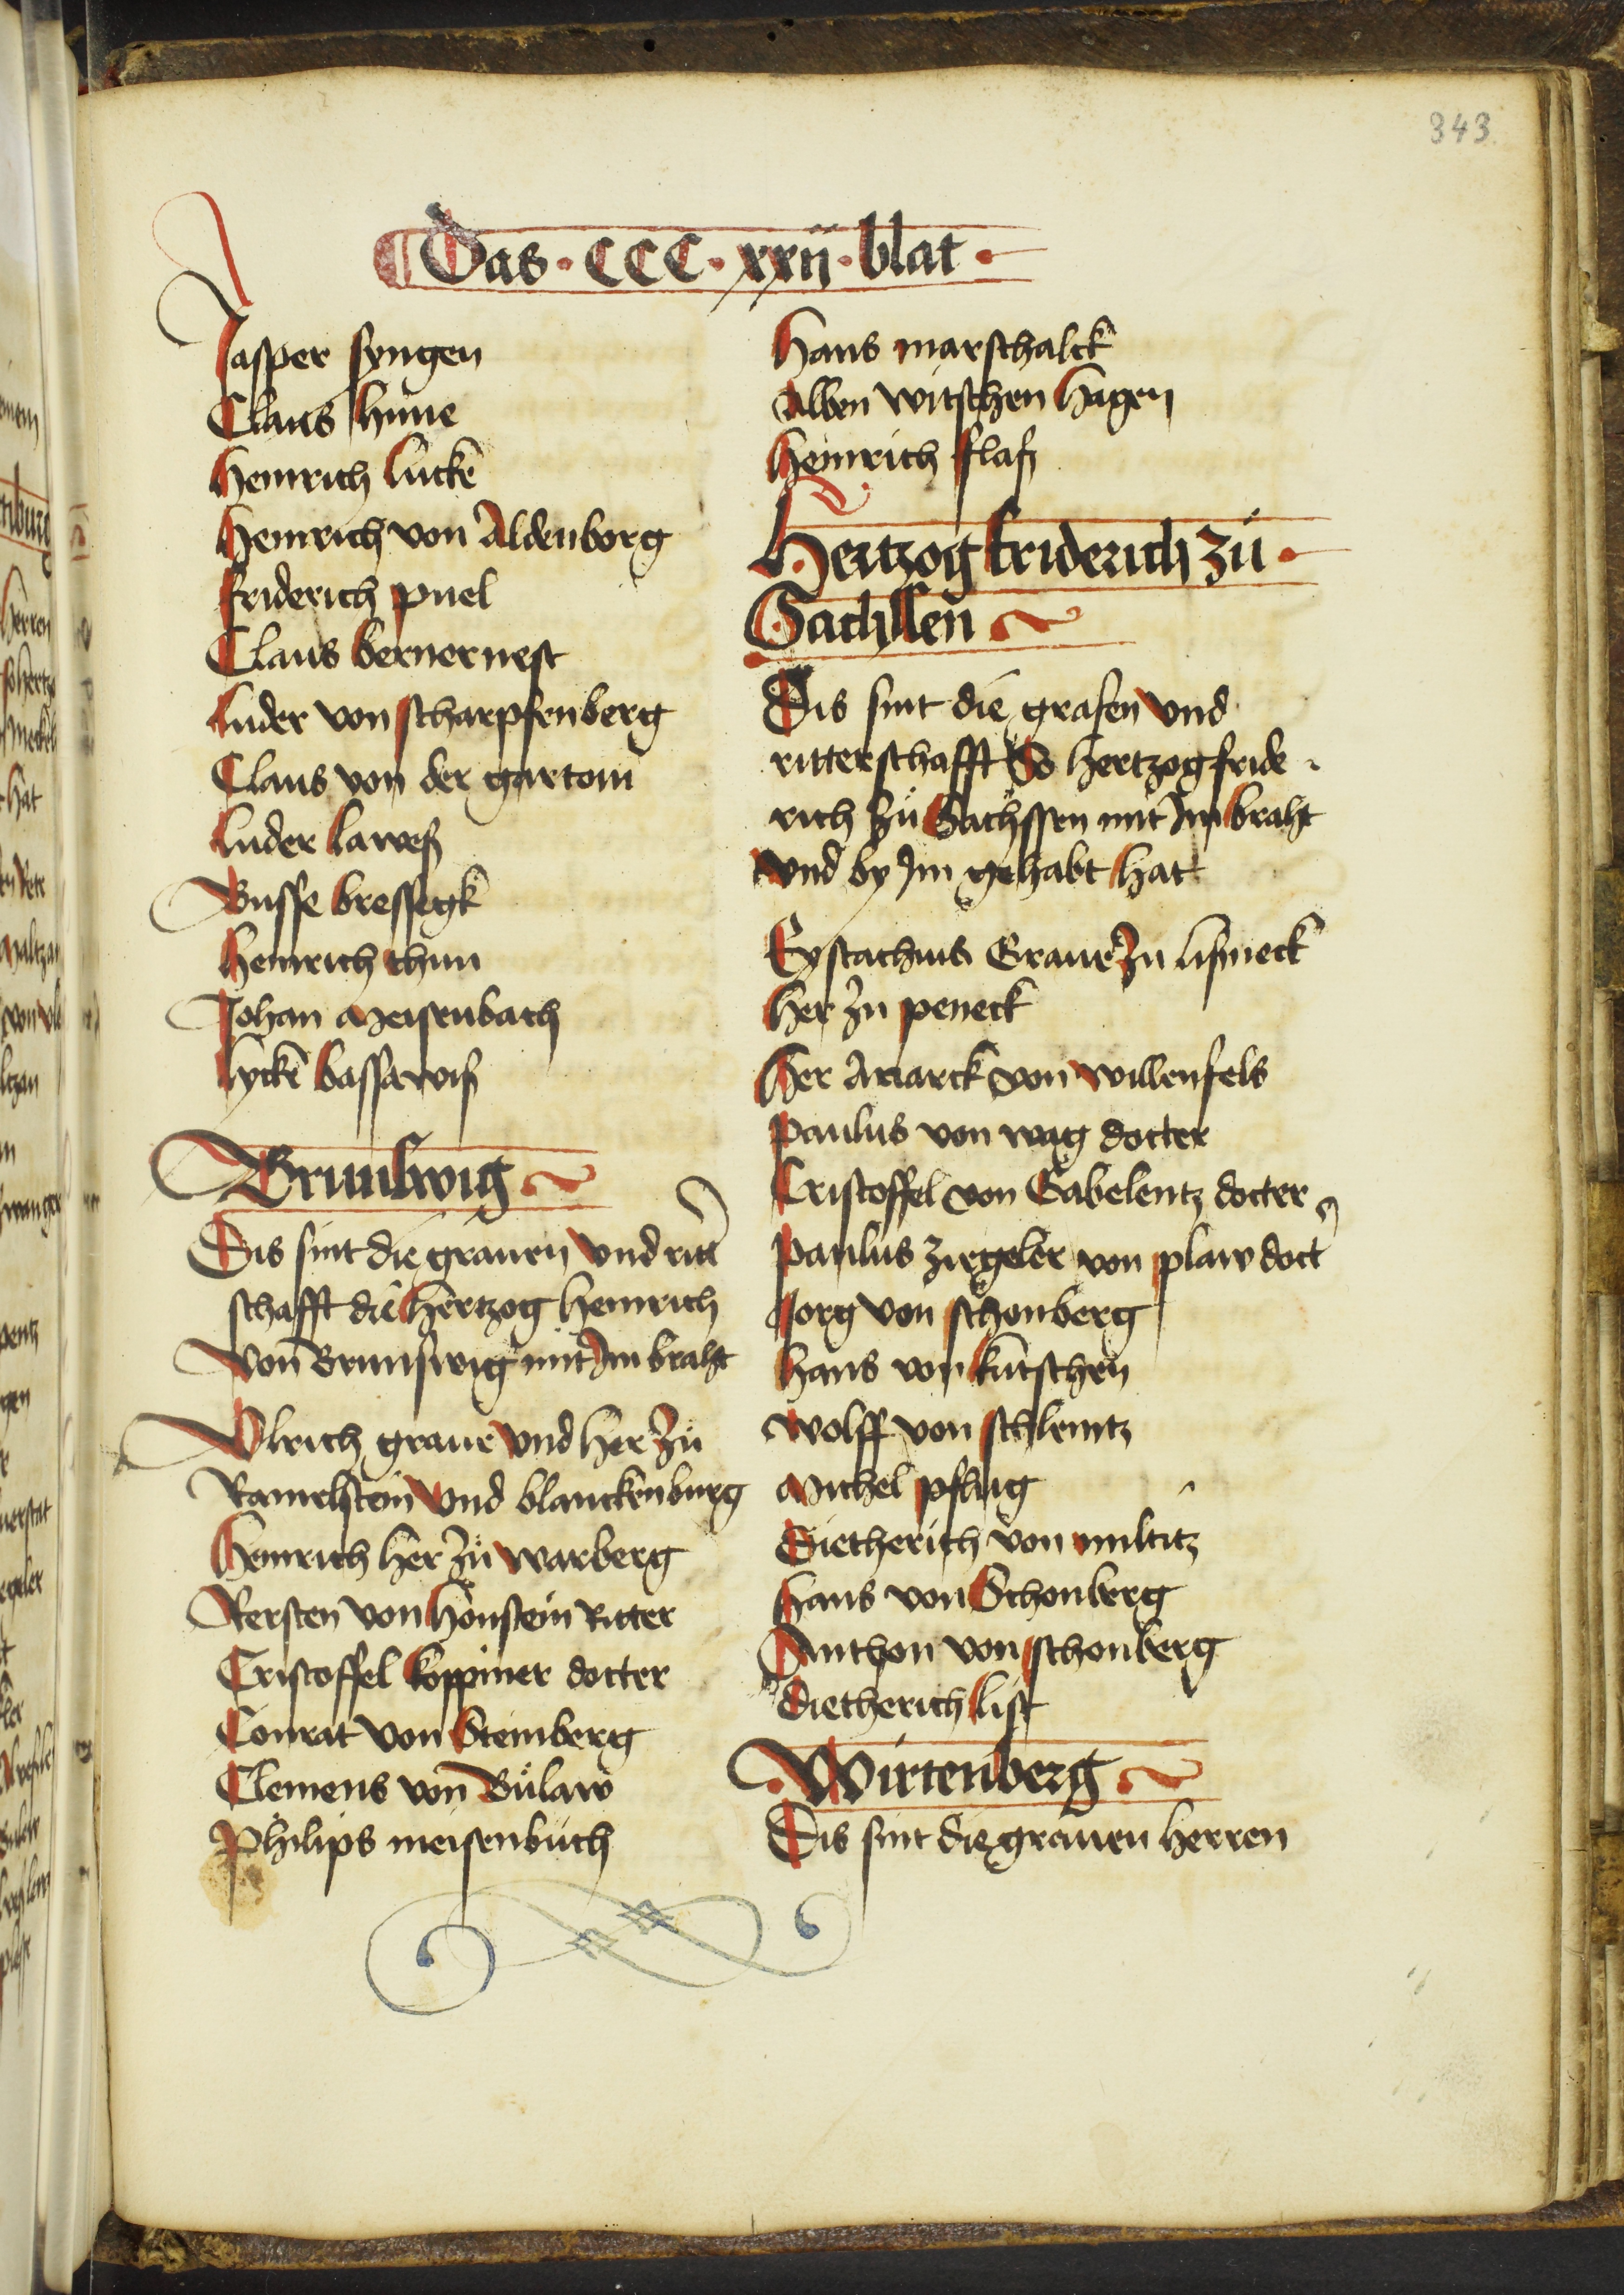 343
Das · CCC · xxij · blat ·
Jasper syngen
Claus hune
Heinrich lucke
Heinrich von Aldenborg
friderich puel
Claus bernernest
Luder von scharpfenberg
Claus von der gartow
Luder laweß
Busse bressegk
Heinrich thun
Johan Meisenbach
lycke bassawiß
Brunswig
Dis sint die grauen vnd ritt
schafft die hertzog heinrich
von Brunswig mit Im braht
Vlrich graue vnd her zu
Ramelstein vnd blanckenburg
Heinrich her zu warberg
Kersten von honstein Ritter
Cristoffel koppiner docter
Conrat von Steinberg
Clemens von Bulaw
Philips meisenbuch
Hans marschalck
Alben witschen hagen
Heinrich flaß
Hertzog friderich zu
Sachssen
Dis sint die grafen vnd
ritterschafft So hertzog fride
rich zu Sachssen mit Im braht
vnd by Im gehabt hat
Eystachius Graue zu lisneck
her zu peneck
Her Anarck von willenfels
Paulus von wag docter
Cristoffel von Gabelentz docter
Paulus zirgeler von plaw doct
Jorg von schonberg
Hans von kutschen
Wolff von schleintz
Michel pflug
Dietherich von miltitz
Hans von Schonberg
Anthon von schonberg
Dietherich list
Wirtenberg
Dis sint die grauen herren